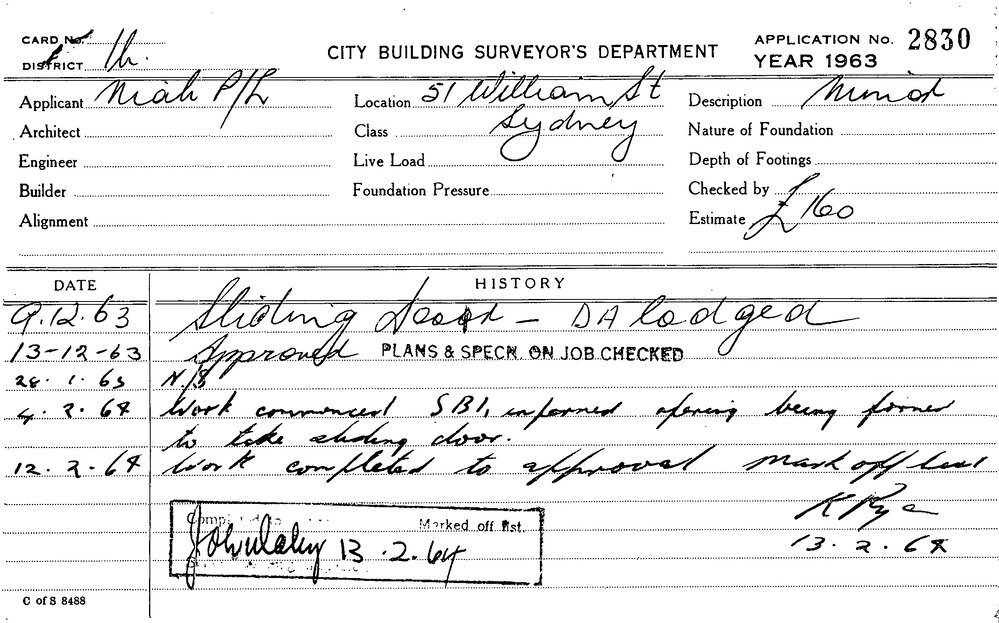 CARD No.
DISTRICT
CITY BUILDING SURVEYOR'S DEPARTMENT
APPLICATION No. 2830
YEAR 1963
Applicant Niah P/L
Location 51 William St
Sydney
Description Minor
Architect
Class
Nature of Foundation
Engineer
Live Load
Depth of Footings
Builder
Foundation Pressure
Checked by
Alignment
Estimate £160
DATE
HISTORY
9.12.63 Sliding door - DA lodged
13-12-63 Approved PLANS & SPECN. ON JOB CHECKED
28.1.63 N/S
4.2.64 Work commenced SBI, informed opening being formed
to take sliding door.
12.2.64 Work completed to approval Mark off list
K Rye
13.2.64
Marked off list.
13.2.64
C of S 8488